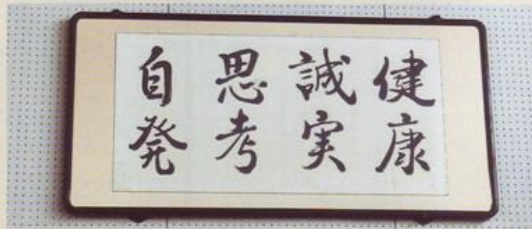 健康
誠実
思考
自発